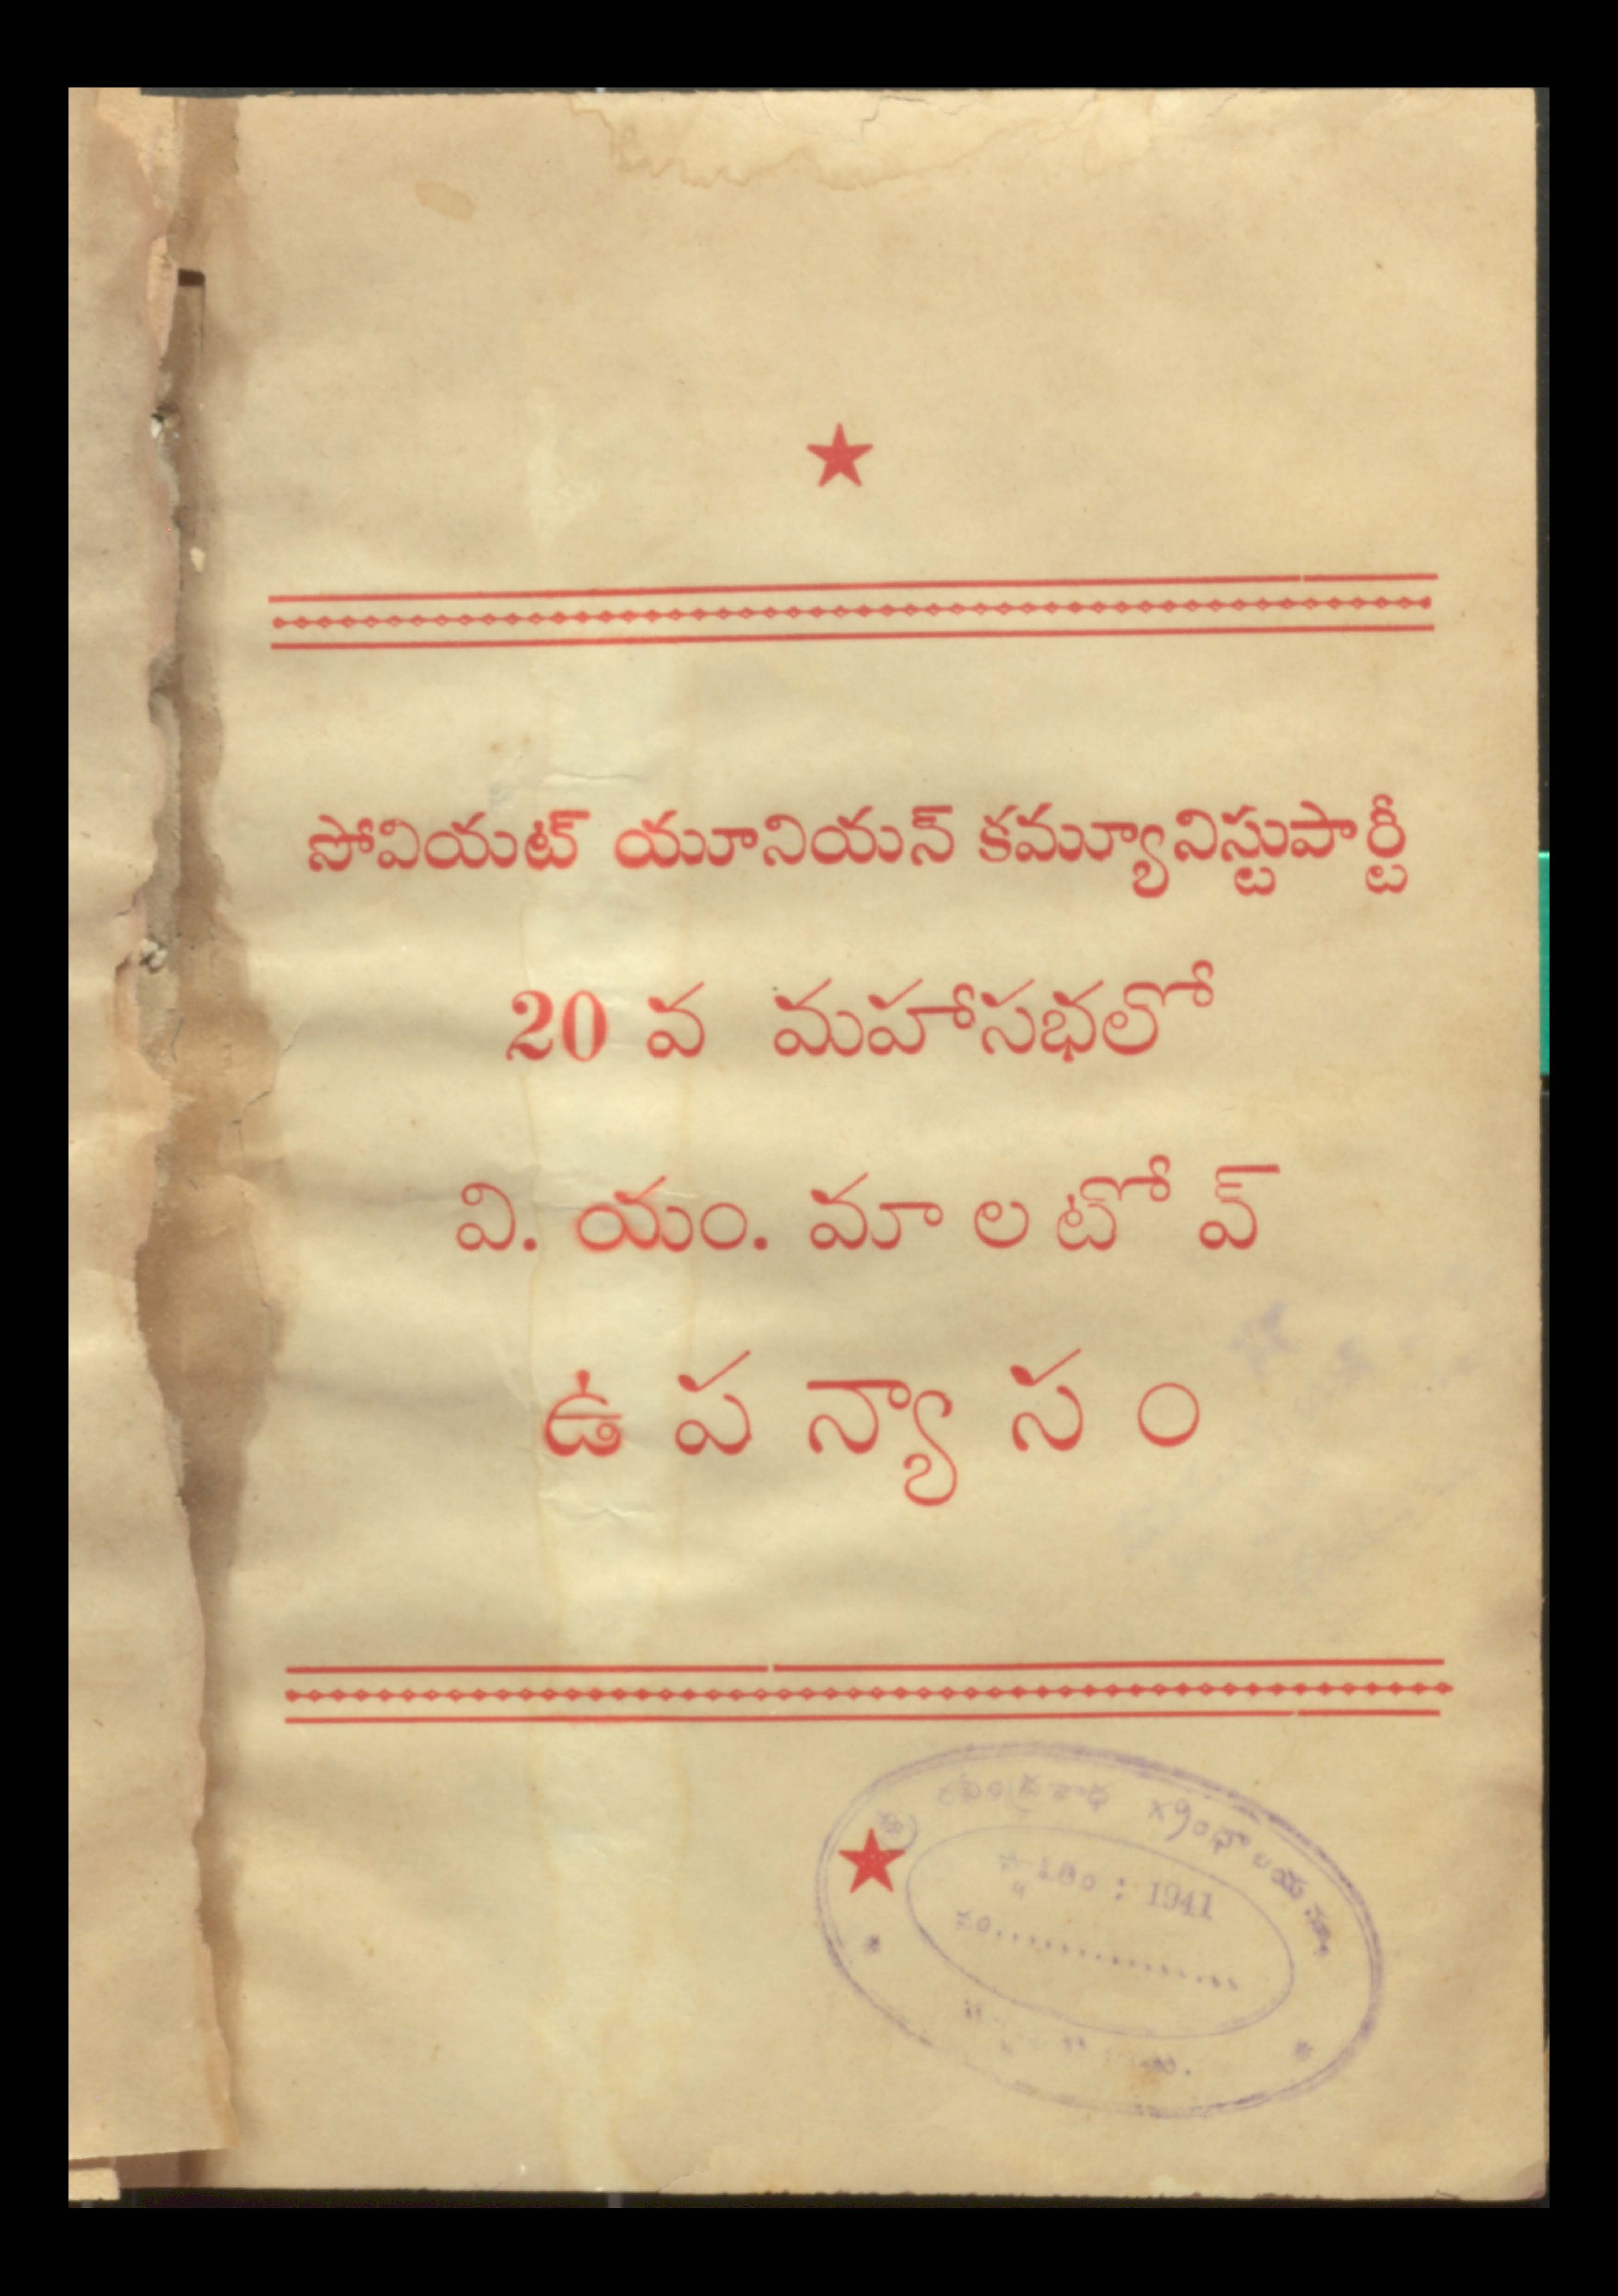 సోవియట్ యూనియన్ కమ్యూనిస్టుపార్టీ
20 వ మహాసభలో
వి. యం. మాలటోవ్
ఉపన్యాసం
: 1941